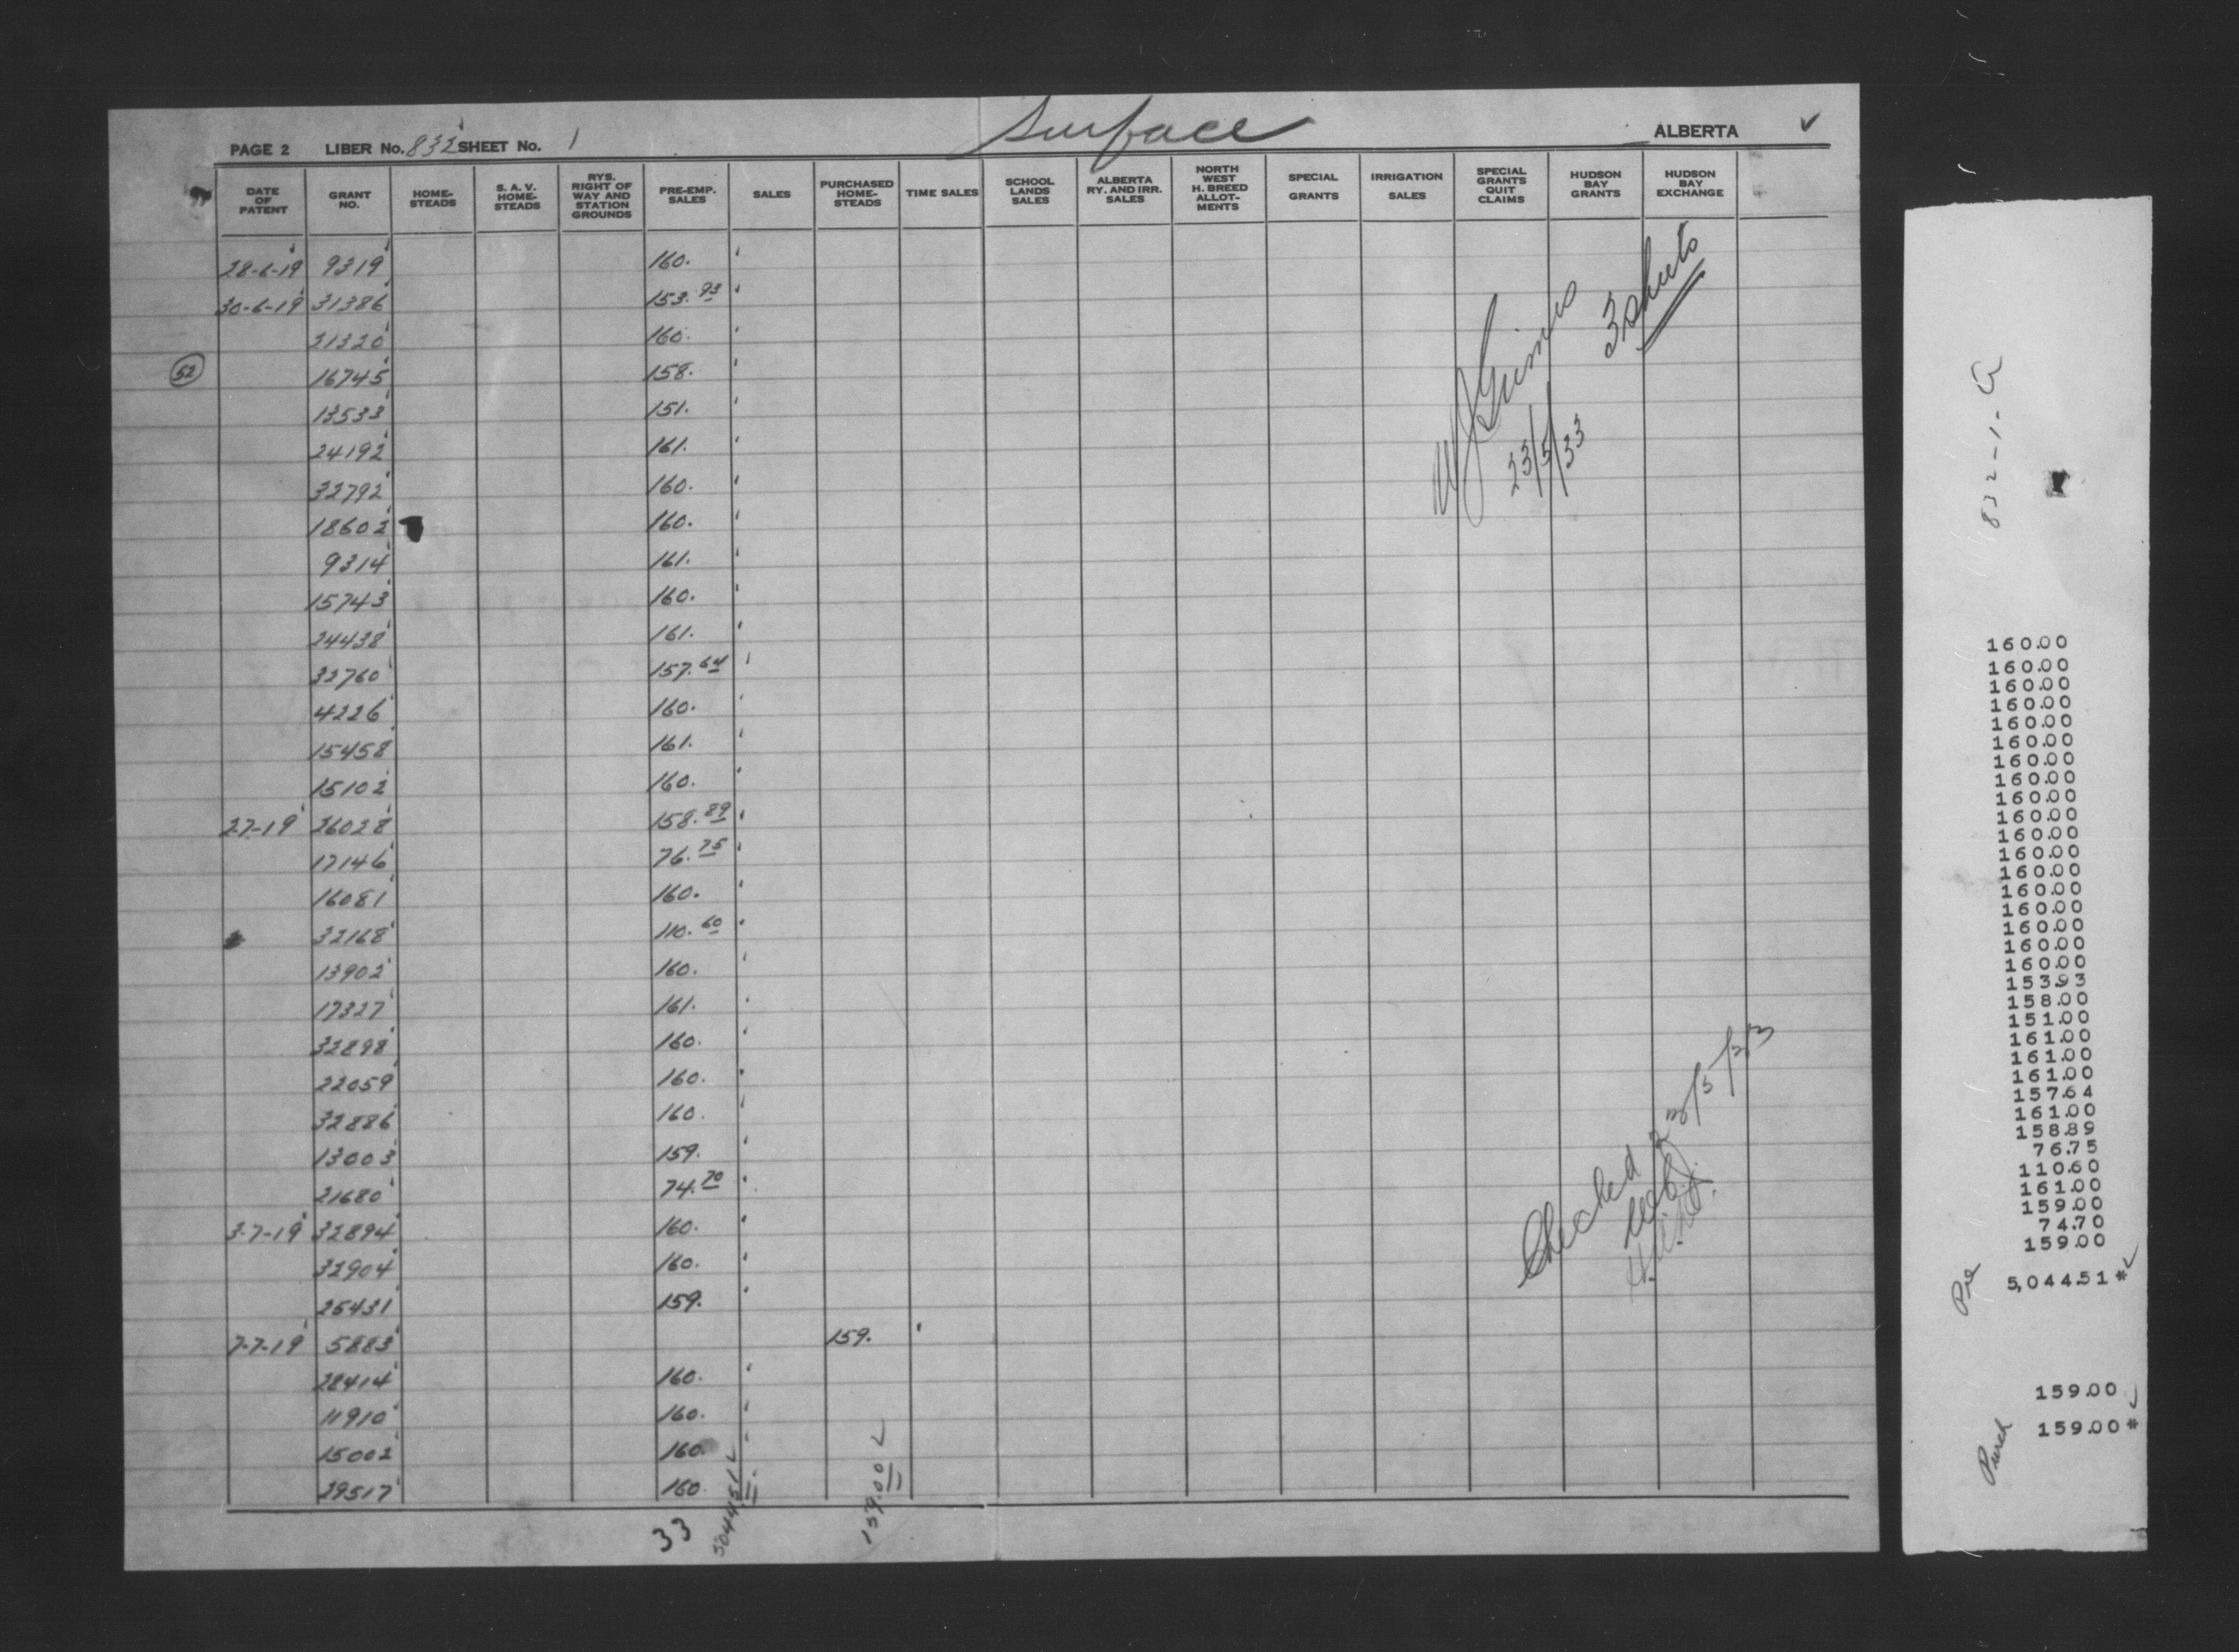 Surface
PAGE 2 LIBER No. 832 SHEET No. 1 ALBERTA ✓
DATE OF PATENT GRANT NO. HOME-STEADS S. A. V. HOME-STEADS RYS. RIGHT OF WAY AND STATION GROUNDS PRE-EMP. SALES SALES PURCHASED HOME-STEADS TIME SALES SCHOOL LANDS SALES ALBERTA RY. AND IRR. SALES NORTH WEST H. BREED ALLOT-MENTS SPECIAL GRANTS IRRIGATION SALES SPECIAL GRANTS QUIT CLAIMS HUDSON BAY GRANTS HUDSON BAY EXCHANGE
28-6-19 9319 160.
30-6-19 31386 153.93
21320 160.
52 16745 158.
13533 151.
24192 161.
32792 160.
18602 160.
9314 161.
15743 160.
24438 161.
32760 157.64
4226 160.
15458 161.
15102 160.
2-7-19 26028 158.89
17146 76.75
16081 160.
32168 110.60
13902 160.
17327 161.
32898 160.
22059 160.
32886 160.
13003 159.
21680 74.70
3-7-19 32894 160.
32904 160.
25431 159.
7-7-19 5883 159.
28414 160.
11910 160.
15002 160.
29517 160.
33 5044.51 ✓ 159.00 ✓
3 sheets
23/5/33
Checked 23/5/33
832-1-a
160.00
160.00
160.00
160.00
160.00
160.00
160.00
160.00
160.00
160.00
160.00
160.00
160.00
160.00
160.00
160.00
160.00
160.00
153.93
158.00
151.00
161.00
161.00
161.00
157.64
161.00
158.89
76.75
110.60
161.00
159.00
74.70
159.00
Pre 5,044.51 * ✓
159.00 ✓
Purch 159.00 *